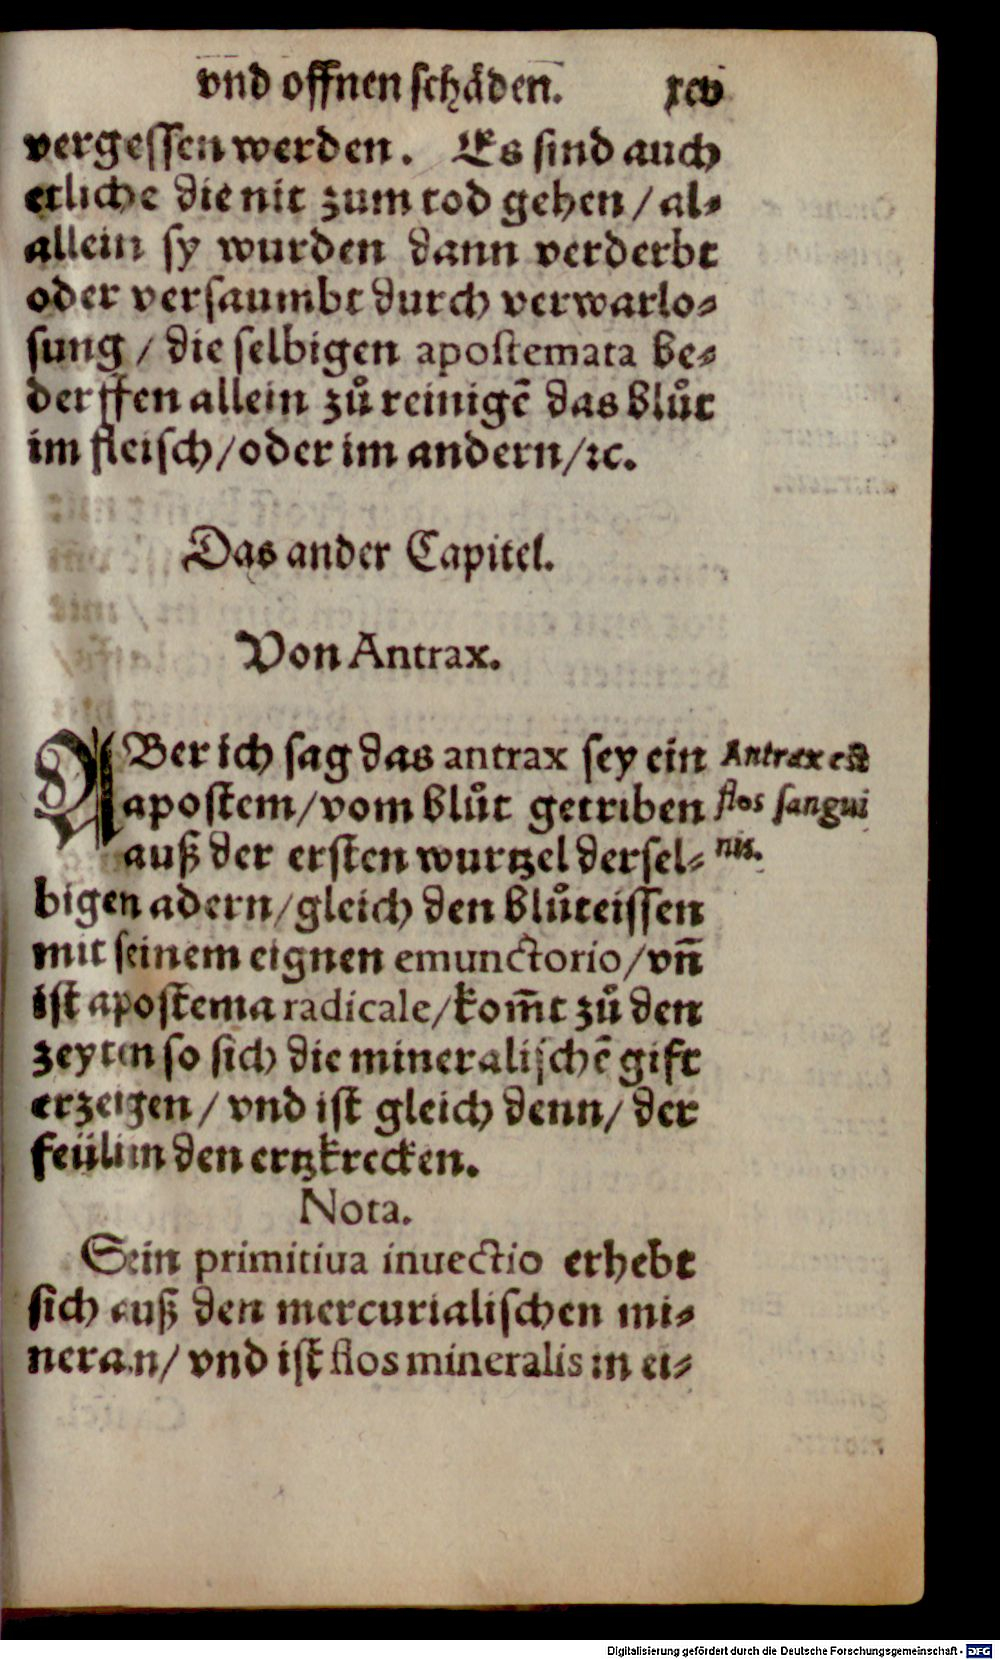 vnd offnen schäden. xcv
vergessen werden. Es sind auch
etliche die nit zum tod gehen / al⸗
allein sy wurden dann verderbt
oder versaumbt durch verwarlo⸗
sung / die selbigen apostemata be⸗
derffen allein zů reinigē das blůt
im fleisch / oder im andern / ꝛc.
Das ander Capitel.
Von Antrax.
ABer ich sag das antrax sey ein
apostem / vom blůt getriben
auß der ersten wurtzel dersel⸗
bigen adern / gleich den blůteissen
mit seinem eignen emunctorio / vñ
ist apostema radicale / kom̄t zů den
zeyten so sich die mineralischē gift
erzeigen / vnd ist gleich denn / der
feülim den ertzkrecken.
Antrax est
flos sangui
nis.
Nota.
Sein primitiua inuectio erhebt
sich auß den mercurialischen mi⸗
neran / vnd ist flos mineralis in ei⸗
Digitalisierung gefördert durch die Deutsche Forschungsgemeinschaft - DFG